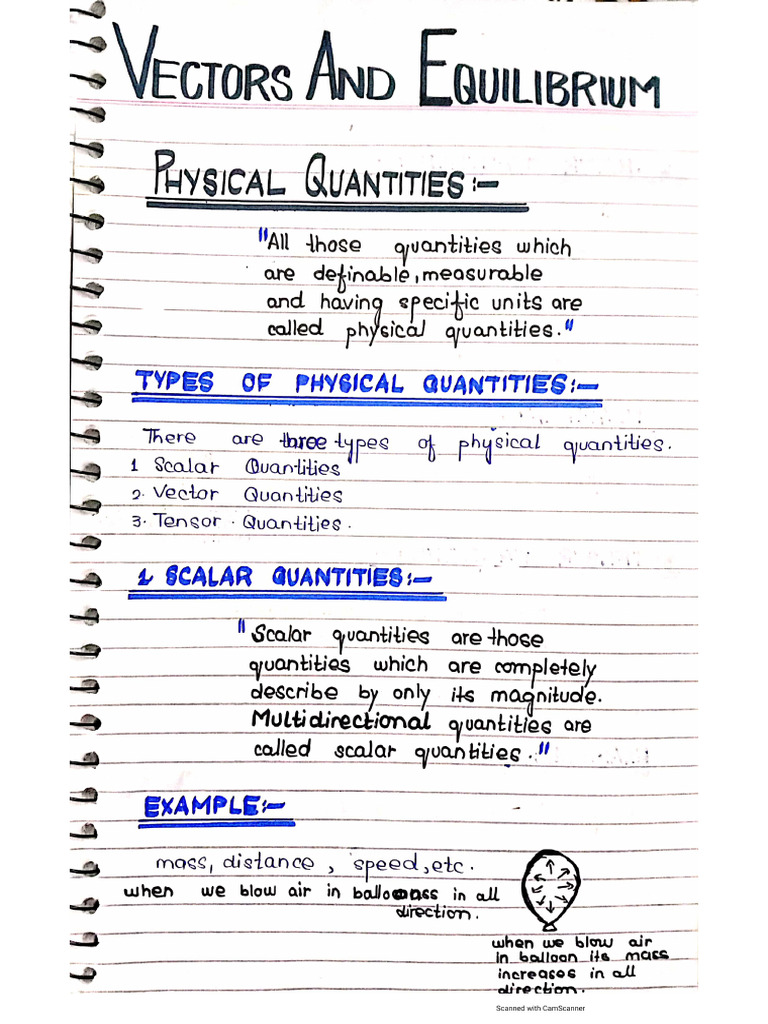 VECTORS AND EQUILIBRIUM
PHYSICAL QUANTITIES:-
"All those quantities which
are definable, measurable
and having specific units are
called physical quantities."
TYPES OF PHYSICAL QUANTITIES:-
There are three types of physical quantities.
1 Scalar Quantities
2. Vector Quantities
3. Tensor. Quantities.
1 SCALAR QUANTITIES:-
"Scalar quantities are those
quantities which are completely
describe by only its magnitude.
Multidirectional quantities are
called scalar quantities."
EXAMPLE:-
mass, distance, speed, etc.
when we blow air in in all
direction.
when we blow air
in balloon its mass
increases in all
direction.
Scanned with CamScanner